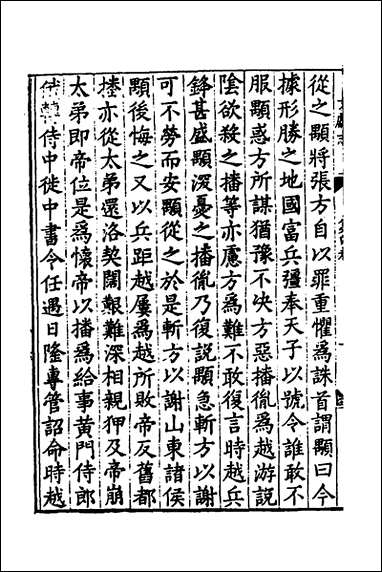 從之顒將張方自以罪重懼爲誅首謂顒曰今
據形勝之地國富兵彊奉天子以號令誰敢不
服顒惑方所謀猶豫不決方惡播胤爲越游說
陰欲殺之播等亦慮方爲難不敢復言時越兵
鋒甚盛顒深憂之播胤乃復說顒急斬方以謝
可不勞而安顒從之於是斬方以謝山東諸侯
顒後悔之又以兵距越屢爲越所敗帝反舊都
播亦從太弟還洛契闊艱難深相親狎及帝崩
太弟即帝位是爲懷帝以播爲給事黃門侍郎
侍中徙中書令任遇日隆專管詔命時越